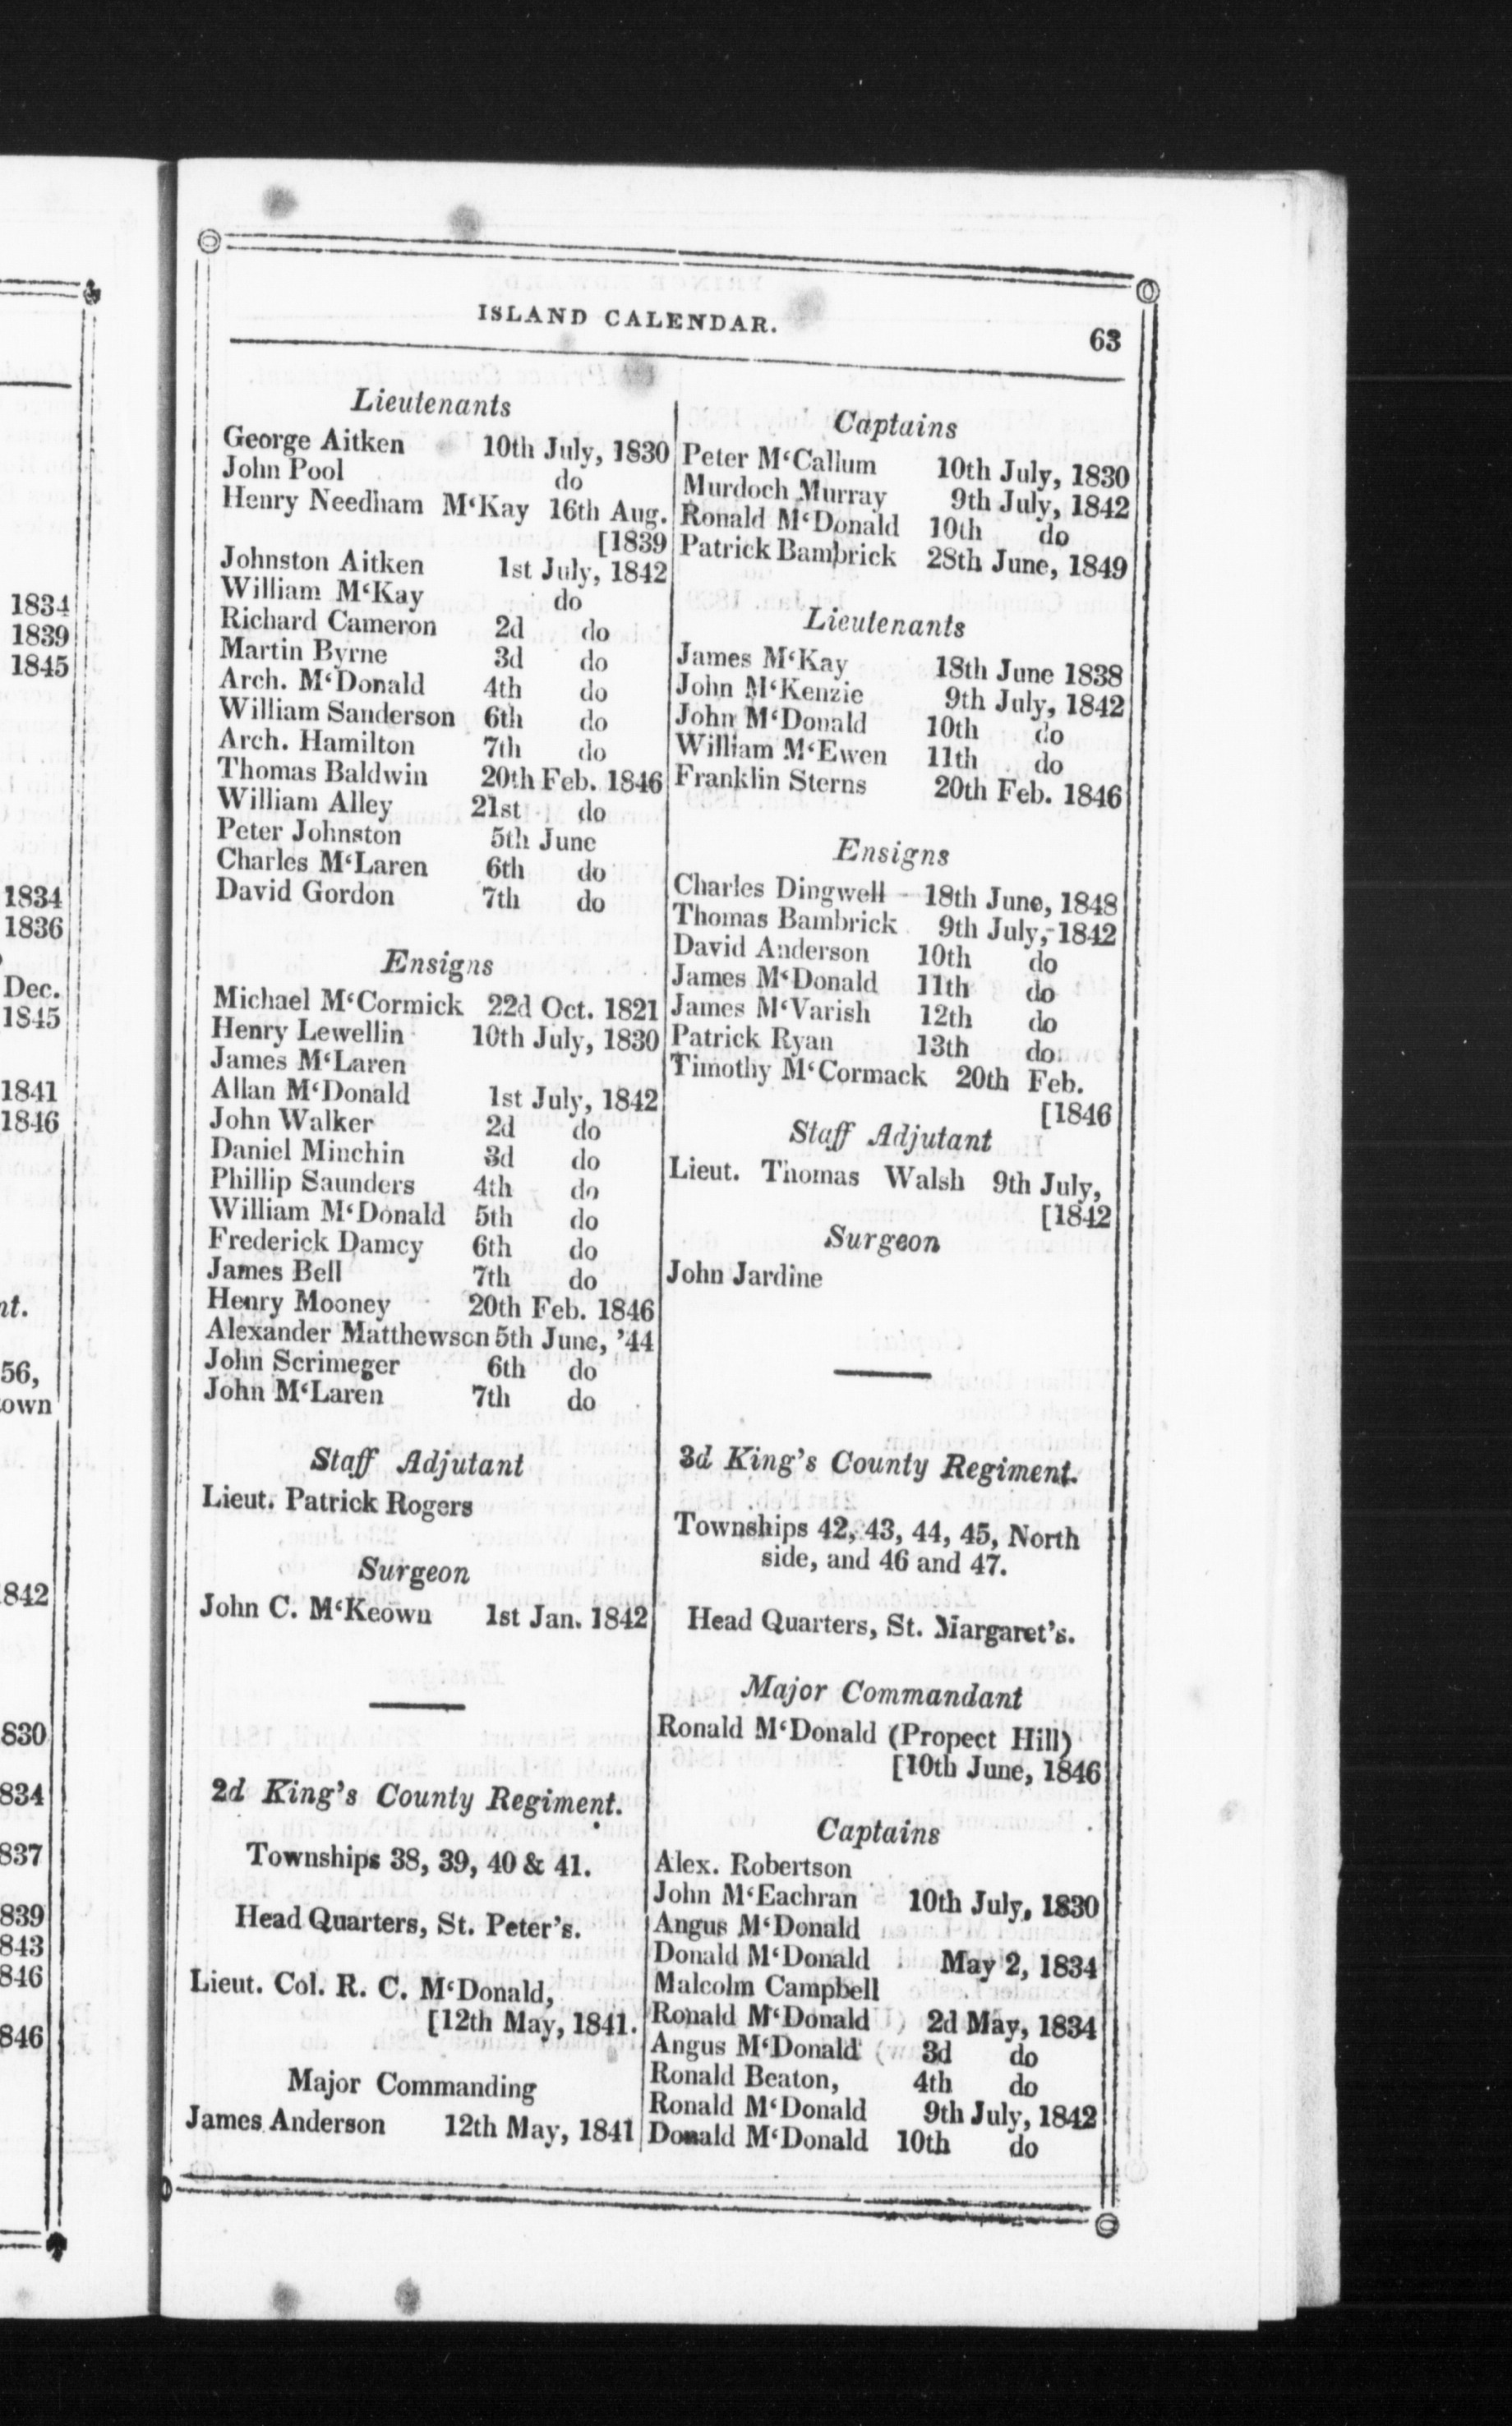 1834
1839
1845
1834
1836
Dec.
1845
1841
1846
nt.
56,
town
1842
830
834
837
839
843
846
846
ISLAND CALENDAR.
63
Lieutenants
George Aitken 10th July, 1830
John Pool do
Henry Needham M‘Kay 16th Aug.
[1839
Johnston Aitken 1st July, 1842
William M‘Kay do
Richard Cameron 2d do
Martin Byrne 3d do
Arch. M‘Donald 4th do
William Sanderson 6th do
Arch. Hamilton 7th do
Thomas Baldwin 20th Feb. 1846
William Alley 21st do
Peter Johnston 5th June
Charles M‘Laren 6th do
David Gordon 7th do
Ensigns
Michael M‘Cormick 22d Oct. 1821
Henry Lewellin 10th July, 1830
James M‘Laren
Allan M‘Donald 1st July, 1842
John Walker 2d do
Daniel Minchin 3d do
Phillip Saunders 4th do
William M‘Donald 5th do
Frederick Damcy 6th do
James Bell 7th do
Henry Mooney 20th Feb. 1846
Alexander Matthewson 5th June, ’44
John Scrimeger 6th do
John M‘Laren 7th do
Staff Adjutant
Lieut. Patrick Rogers
Surgeon
John C. M‘Keown 1st Jan. 1842
2d King’s County Regiment.
Townships 38, 39, 40 & 41.
Head Quarters, St. Peter’s.
Lieut. Col. R. C. M‘Donald,
[12th May, 1841.
Major Commanding
James Anderson 12th May, 1841
Captains
Peter M‘Callum 10th July, 1830
Murdoch Murray 9th July, 1842
Ronald M‘Donald 10th do
Patrick Bambrick 28th June, 1849
Lieutenants
James M‘Kay 18th June 1838
John M‘Kenzie 9th July, 1842
John M‘Donald 10th do
William M‘Ewen 11th do
Franklin Sterns 20th Feb. 1846
Ensigns
Charles Dingwell 18th June, 1848
Thomas Bambrick 9th July, 1842
David Anderson 10th do
James M‘Donald 11th do
James M‘Varish 12th do
Patrick Ryan 13th do
Timothy M‘Cormack 20th Feb.
[1846
Staff Adjutant
Lieut. Thomas Walsh 9th July,
[1842
Surgeon
John Jardine
3d King’s County Regiment.
Townships 42, 43, 44, 45, North
side, and 46 and 47.
Head Quarters, St. Margaret’s.
Major Commandant
Ronald M‘Donald (Propect Hill)
[10th June, 1846
Captains
Alex. Robertson
John M‘Eachran 10th July, 1830
Angus M‘Donald
Donald M‘Donald May 2, 1834
Malcolm Campbell
Ronald M‘Donald 2d May, 1834
Angus M‘Donald 3d do
Ronald Beaton, 4th do
Ronald M‘Donald 9th July, 1842
Donald M‘Donald 10th do